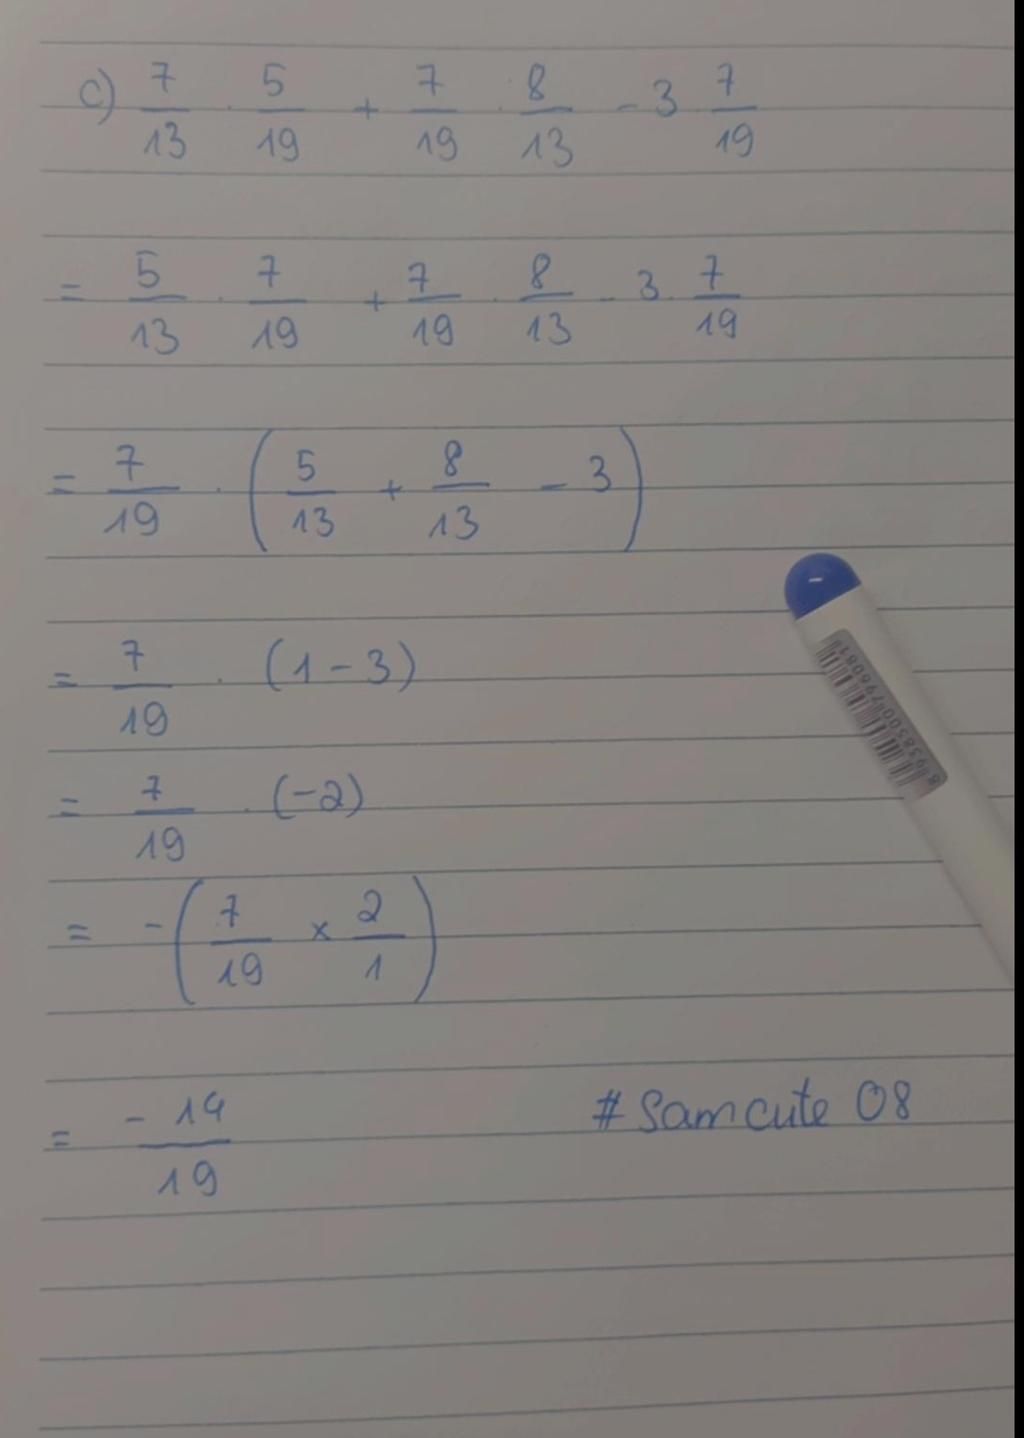 c) 7/13 . 5/19 + 7/19 . 8/13 - 3 7/19
= 5/13 . 7/19 + 7/19 . 8/13 - 3 . 7/19
= 7/19 . (5/13 + 8/13 - 3)
= 7/19 . (1 - 3)
= 7/19 . (-2)
= -(7/19 × 2/1)
= -14/19
# Sam cute 08
8938500796081